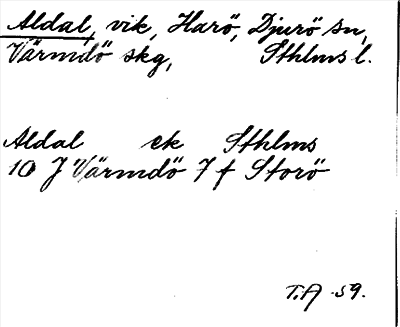 Aldal, vik, Harö, Djurö sn,
Värmdö skg, Sthlms l.
Aldal ek Sthlms
10 J Värmdö 7 f Storö
T.A -59.